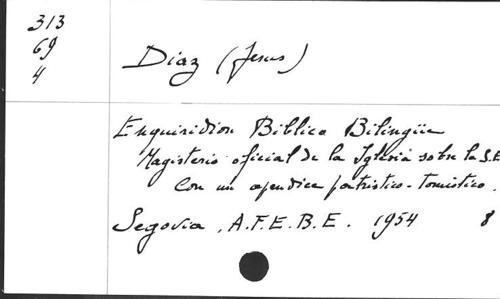 313
69
4
Diaz (Jesus)
Enquiridion Biblico Bilingüe
Magisterio oficial de la Iglesia sobre la S.E
Con un apendice patristico-tomistico.
Segovia, A.F.E.B.E. 1954 8